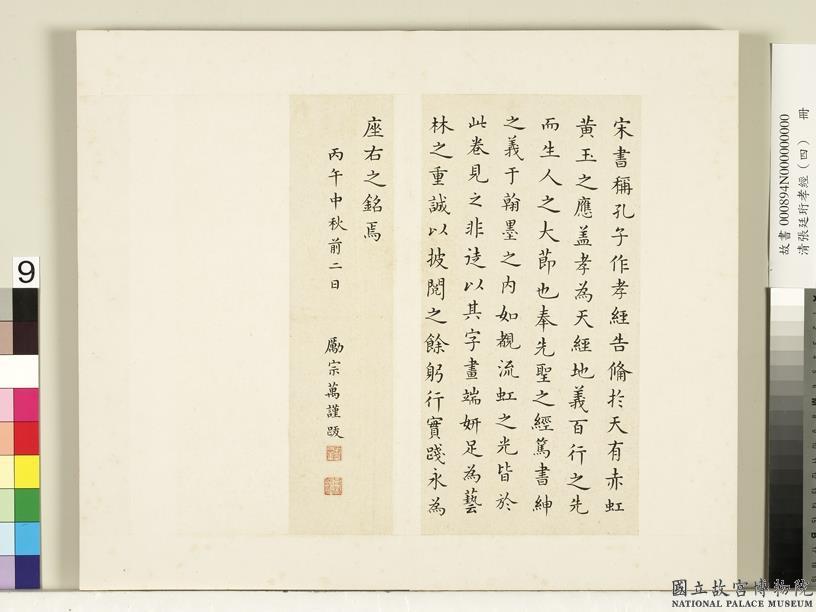 宋書稱孔子作孝經告備於天有赤虹
黃玉之應蓋孝為天經地義百行之先
而生人之大節也奉先聖之經篤書紳
之義于翰墨之內如覩流虹之光皆於
此卷見之非徒以其字畫端妍足為藝
林之重誠以披閱之餘躬行實踐永為
座右之銘焉
丙午中秋前二日
勵宗萬謹跋
故書000894N000000000
清張廷珩孝經（四） 冊
9
國立故宮博物院
NATIONAL PALACE MUSEUM